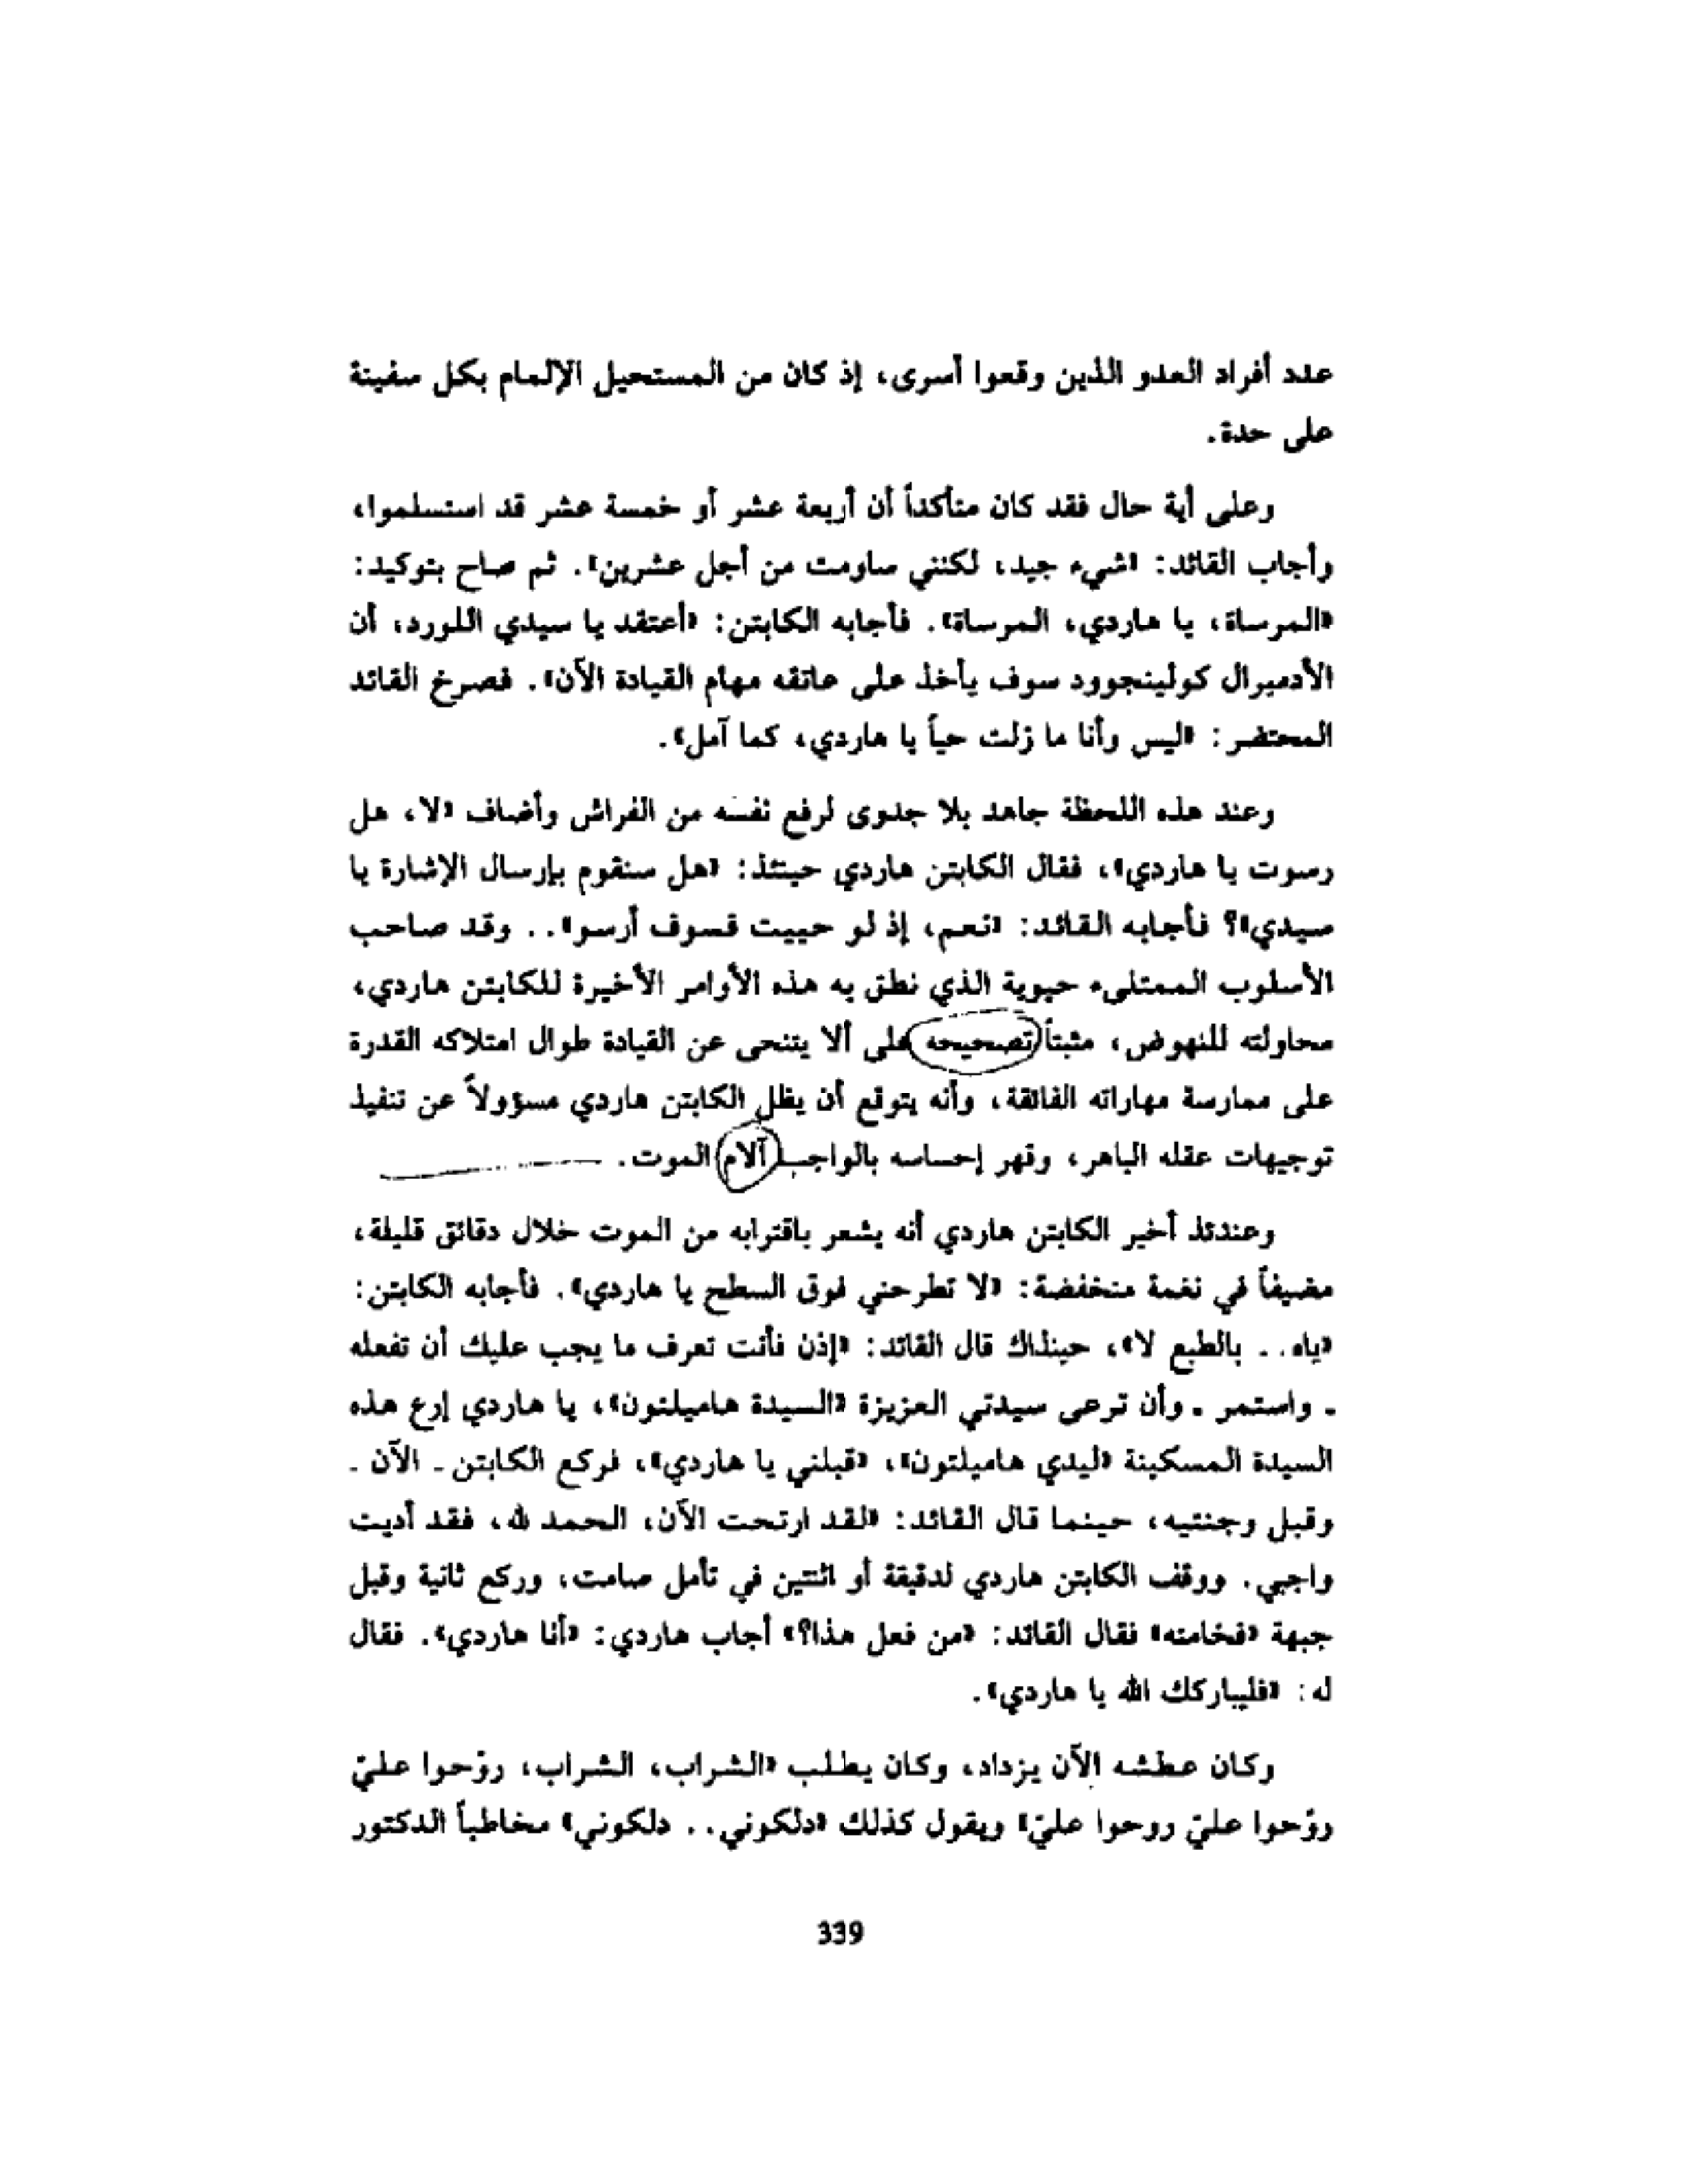 عدد أفراد العدو الذين وقعوا أسرى، إذ كان من المستحيل الإلمام بكل سفينة
على حدة.
وعلى أية حال فقد كان متأكداً أن أربعة عشر أو خمسة عشر قد استسلموا،
وأجاب القائد: «شيء جيد، لكنني ساومت من أجل عشرين». ثم صاح بتوكيد:
«المرساة، يا هاردي، المرساة». فأجابه الكابتن: «أعتقد يا سيدي اللورد، أن
الأدميرال كولينجوود سوف يأخذ على عاتقه مهام القيادة الآن». فصرخ القائد
المحتضر: «ليس وأنا ما زلت حياً يا هاردي، كما آمل».
وعند هذه اللحظة جاهد بلا جدوى لرفع نفسه من الفراش وأضاف «لا، هل
رسوت يا هاردي»، فقال الكابتن هاردي حينئذ: «هل سنقوم بإرسال الإشارة يا
سيدي»؟ فأجابه القائد: «نعم، إذ لو حييت فسوف أرسو».. وقد صاحب
الأسلوب الممتلىء حيوية الذي نطق به هذه الأوامر الأخيرة للكابتن هاردي،
محاولته للنهوض، مثبتاً تصحيحه على ألا يتنحى عن القيادة طوال امتلاكه القدرة
على ممارسة مهاراته الفائقة، وأنه يتوقع أن يظل الكابتن هاردي مسؤولاً عن تنفيذ
توجيهات عقله الباهر، وقهر إحساسه بالواجب آلام الموت.
وعندئذ أخبر الكابتن هاردي أنه يشعر باقترابه من الموت خلال دقائق قليلة،
مضيفاً في نغمة منخفضة: «لا تطرحني فوق السطح يا هاردي». فأجابه الكابتن:
«ياه.. بالطبع لا»، حينذاك قال القائد: «إذن فأنت تعرف ما يجب عليك أن تفعله
ـ واستمر ـ وأن ترعى سيدتي العزيزة «السيدة هاميلتون»، يا هاردي إرع هذه
السيدة المسكينة «ليدي هاميلتون»، «قبلني يا هاردي»، فركع الكابتن ـ الآن ـ
وقبل وجنتيه، حينما قال القائد: «لقد ارتحت الآن، الحمد لله، فقد أديت
واجبي. ووقف الكابتن هاردي لدقيقة أو اثنتين في تأمل صامت، وركع ثانية وقبل
جبهة «فخامته» فقال القائد: «من فعل هذا؟» أجاب هاردي: «أنا هاردي». فقال
له: «فليباركك الله يا هاردي».
وكان عطشه الآن يزداد، وكان يطلب «الشراب، الشراب، روّحوا عليّ
روّحوا عليّ روحوا عليّ» ويقول كذلك «دلكوني.. دلكوني» مخاطباً الدكتور
339